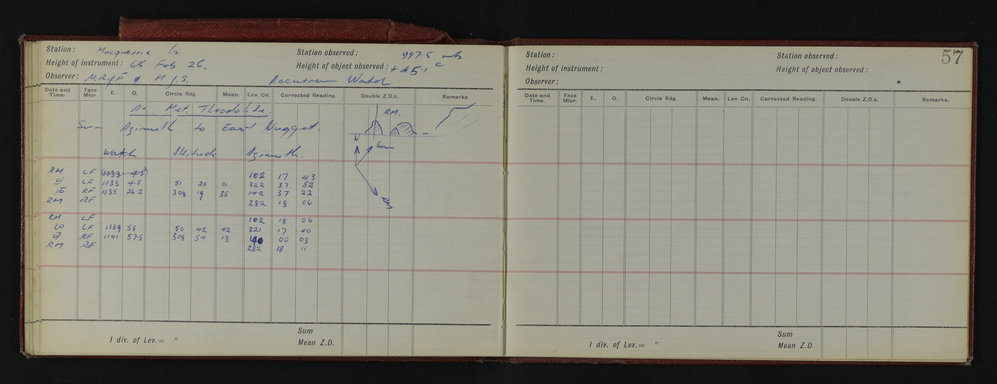 Station: Macquarie Is. Station observed: 997.5 mbs
Height of instrument: 65 Feb 26. Height of object observed: +45.1 C
Observer: Accutron Watch
Date and Time. Face Micr. E. O. Circle Rdg. Mean. Lev. Cn. Corrected Reading. Double Z.D.s. Remarks.
At Met Theodolite
Sun Azimuth to East Nugget
Watch Altitude Azimuth.
RM LF 102 17 43
LF 1133 41.5 51 20 01 322 37 52
RF 1135 26.2 308 19 35 142 37 22
RM RF 282 18 06
RM LF 102 18 06
LF 1139 58 50 42 42 321 17 40
RF 1141 57.5 308 54 13 140 00 03
RM RF 282 18 11
RM
N
Sun
RM
Sum
1 div. of Lev. = " Mean Z.D.
57
Station: Station observed:
Height of instrument: Height of object observed:
Observer:
Date and Time. Face Micr. E. O. Circle Rdg. Mean. Lev Cn. Corrected Reading Double Z.D.s. Remarks.
Sum
1 div. of Lev. = " Mean Z.D.